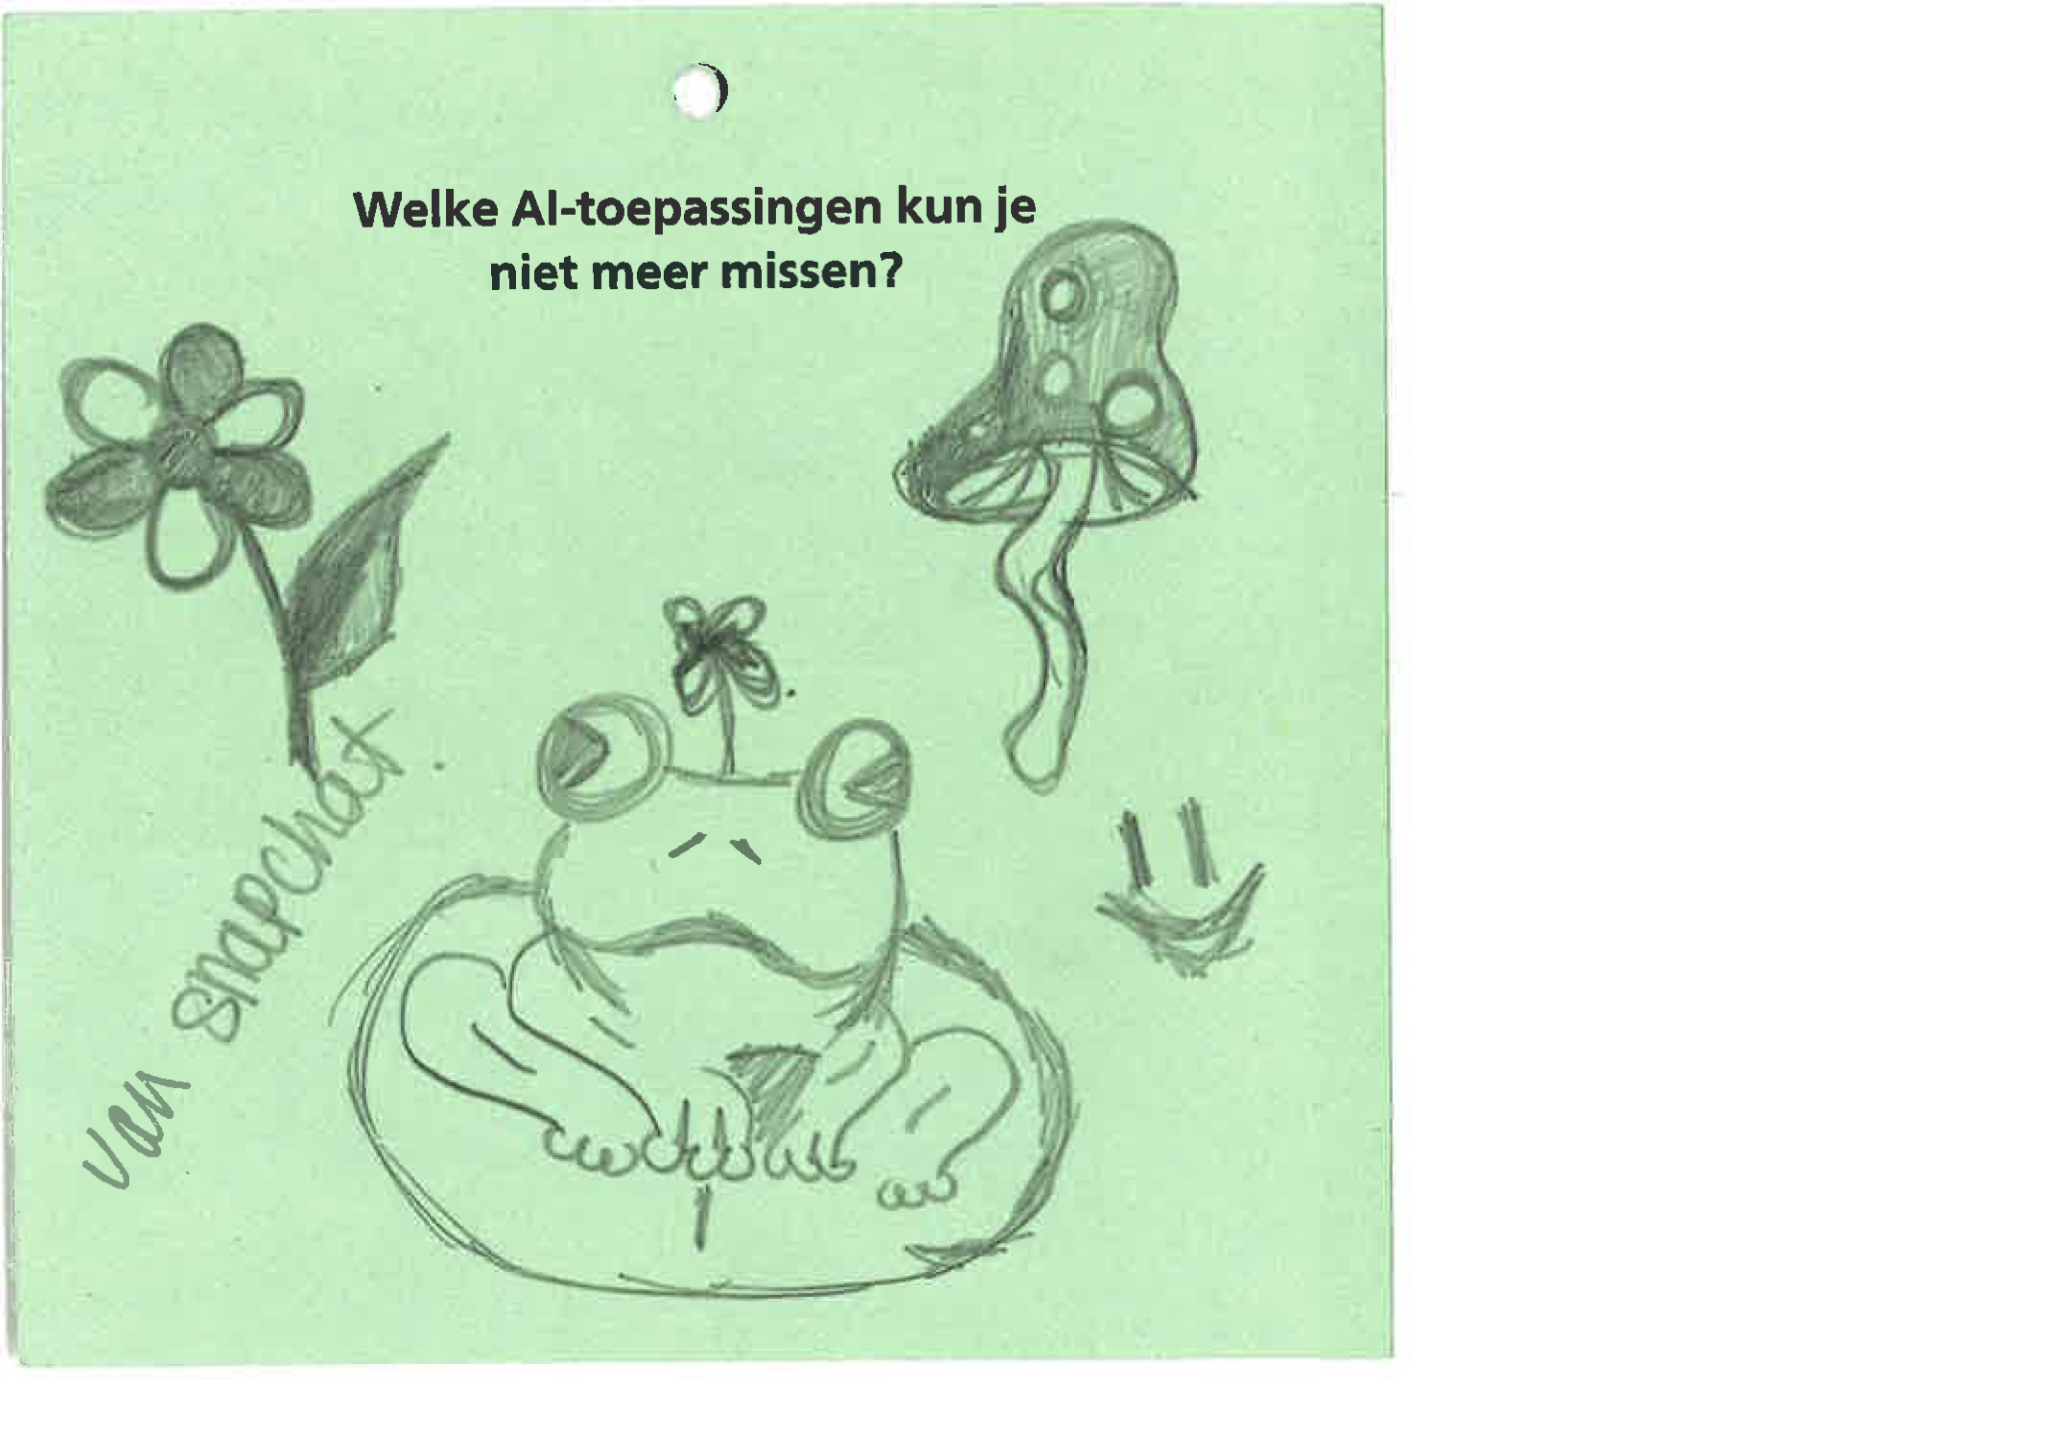 Welke AI-toepassingen kun je
niet meer missen?
van snapchat.